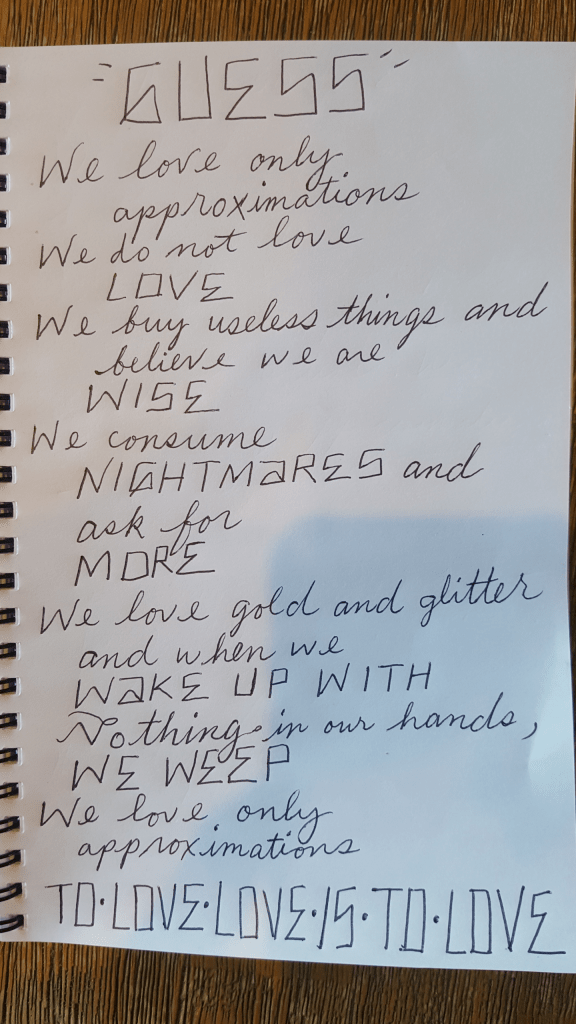 "GUESS"
We love only
approximations
We do not love
LOVE
We buy useless things and
believe we are
WISE
We consume
NIGHTMaRES and
ask for
MORE
We love gold and glitter
and when we
WaKE UP WITH
Nothing in our hands,
WE WEEP
We love only
approximations
TO·LOVE·LOVE·IS·TO·LOVE